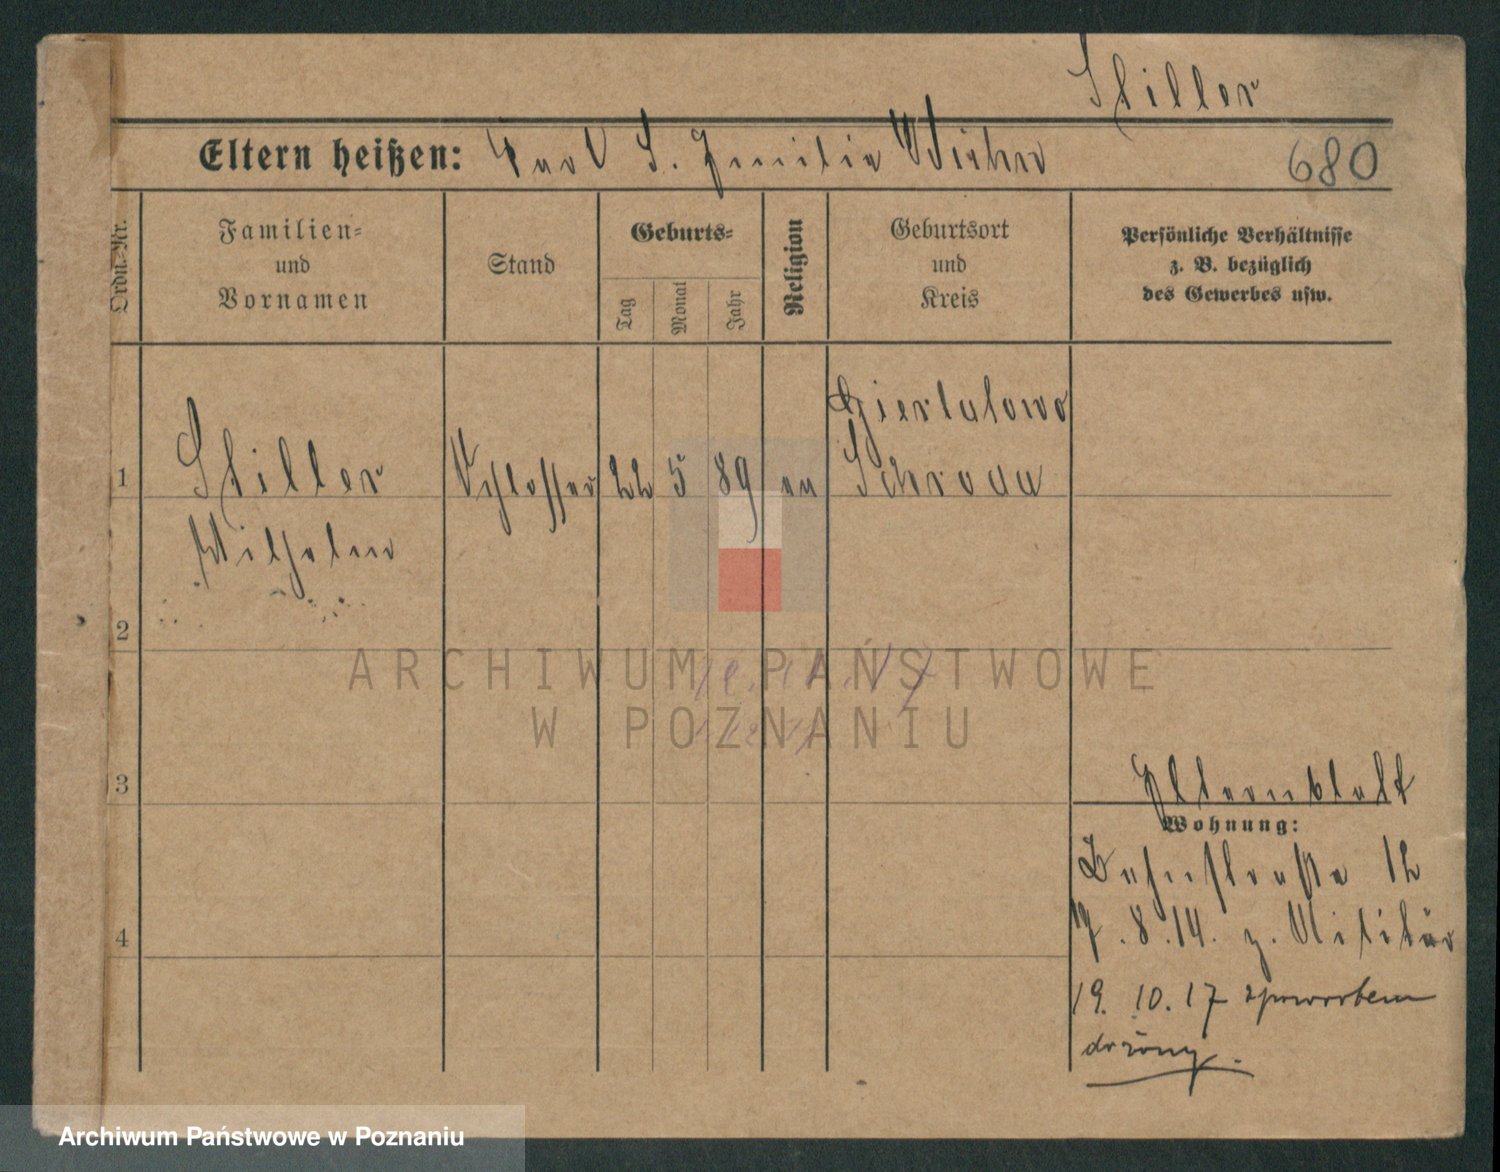 Stiller
Eltern heißen: Karl S. Emilie
680
Ordn.-Nr.
Familien-
und
Vornamen
Stand
Geburts-
Tag
Monat
Jahr
Religion
Geburtsort
und
Kreis
Persönliche Verhältnisse
z. B. bezüglich
des Gewerbes usw.
Gierlatowo
1 Stiller Schlosser 22 5 89 ev Schroda
Wilhelm
2
ARCHIWUM PAŃSTWOWE
W POZNANIU
3
Elternblatt
Wohnung:
Bahnstraße 12
4
17.8.14. z. Militär
19.10.17
do żony.
Archiwum Państwowe w Poznaniu